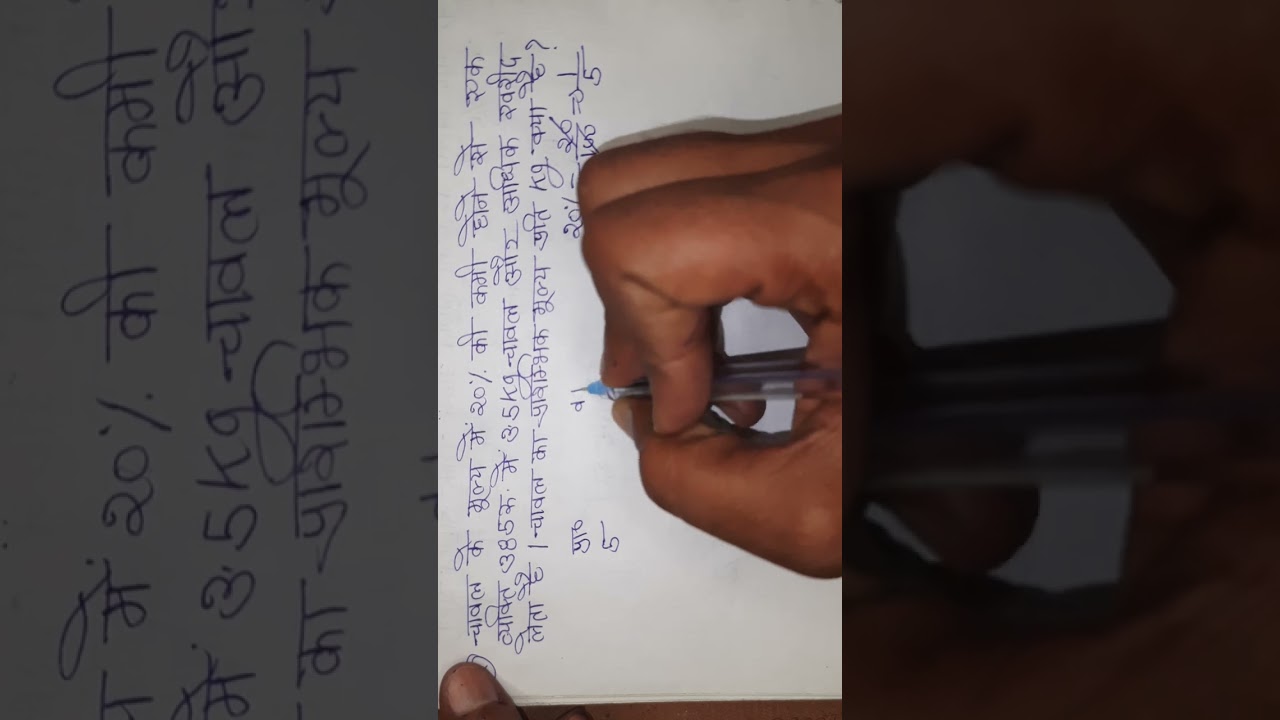 चावल के मूल्य में 20% की कमी होने से एक
व्यक्ति 385रू. में 3.5Kg चावल और अधिक खरीद
लेता है। चावल का प्रारम्भिक मूल्य प्रति Kg क्या है?
20% = 20/100 ⇒ 1/5
प्रा०
5